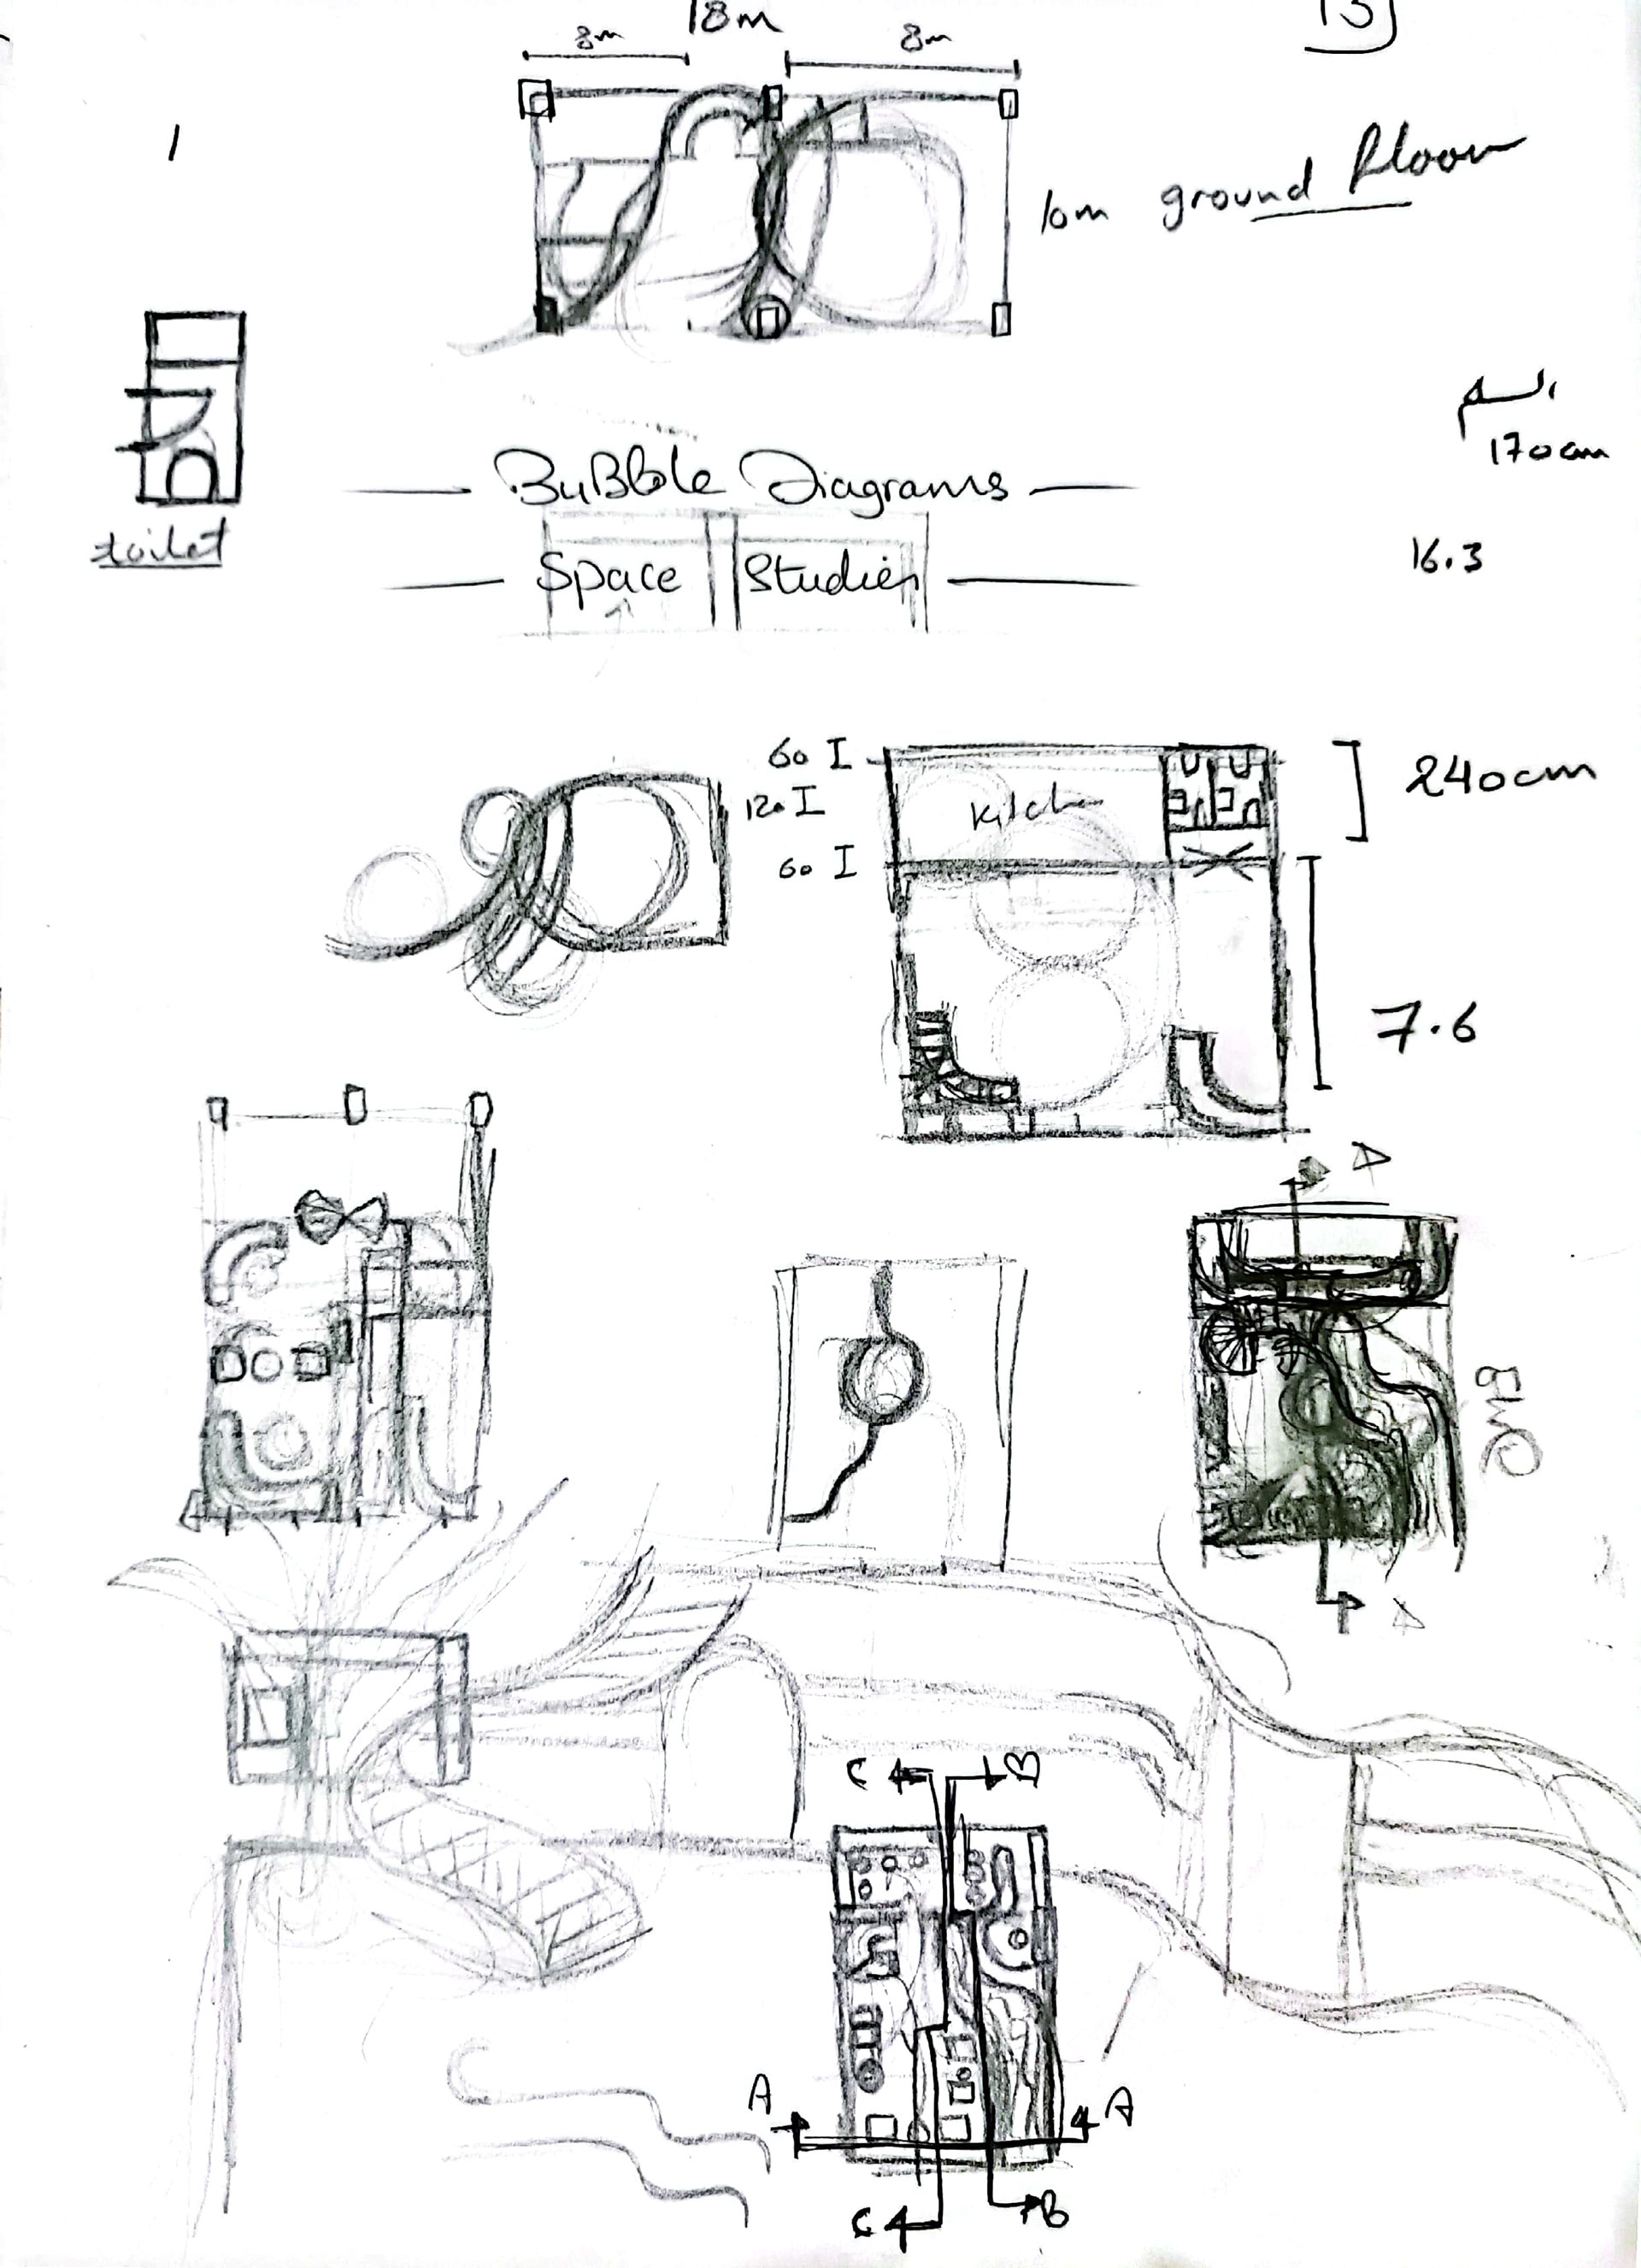 18m
8m
8m
10m ground floor
السلم
170cm
toilet
BuBble Diagrams
Space Studies
16.3
60
120
60
Kitchen
240cm
7.6
C
B
A
A
C
B